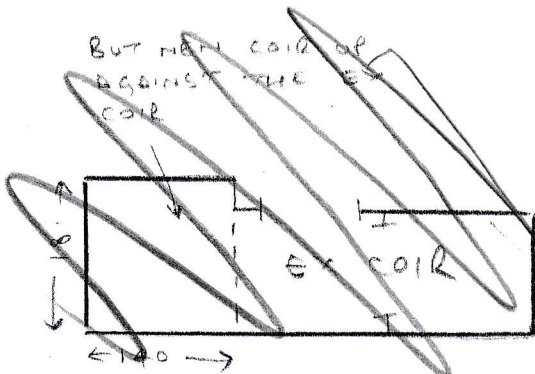 BUT NEW COIR UP
AGAINST THE EX
COIR
EX COIR
140